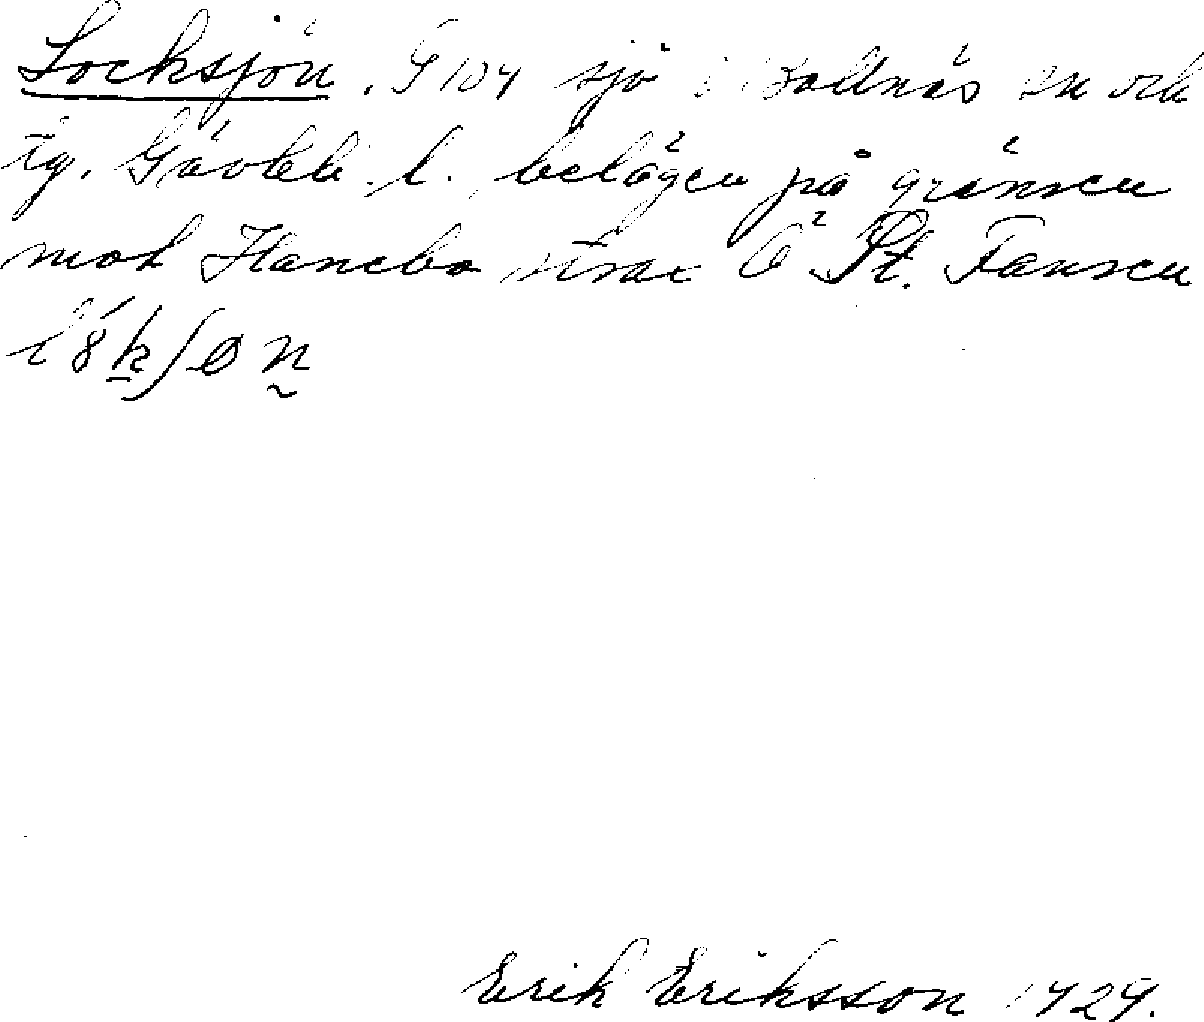 Locksjön. G 104 sjö i Bollnäs sn och
tg. Gävleb. l. belägen på gränsen
mot Hanebo strax Ö St. Fansen
Erik Eriksson 1929.